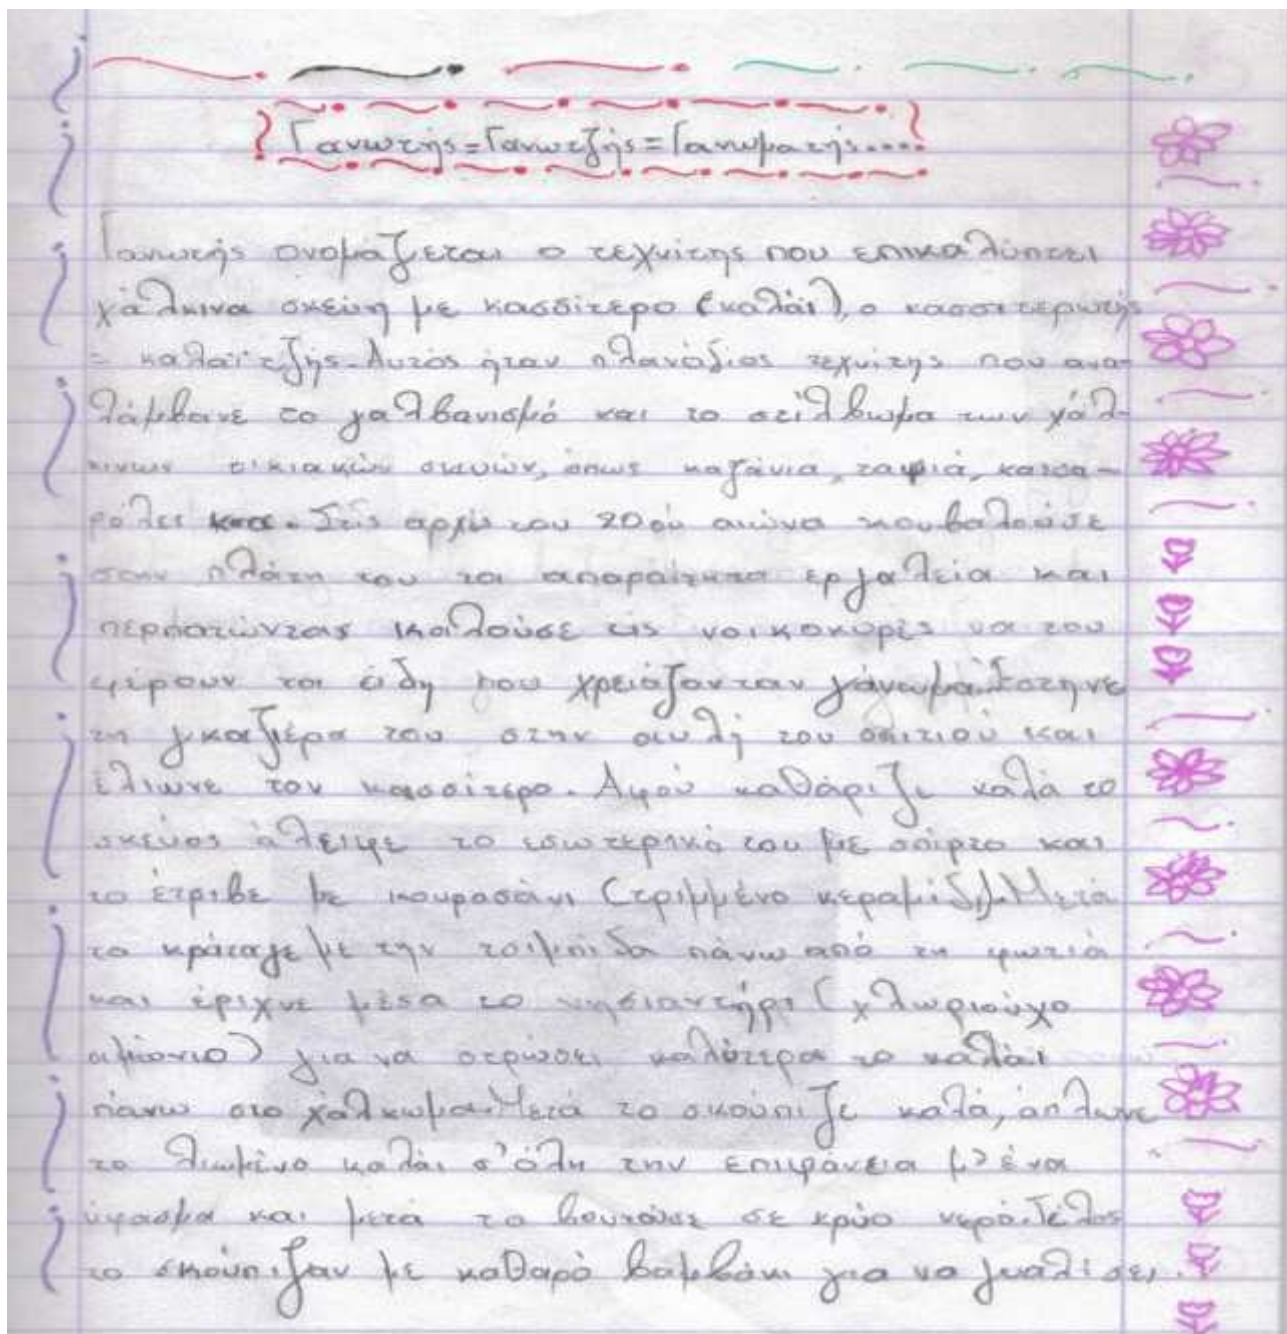 Γανωτής=Γανωτζής=Γανωματής....
Γανωτής ονομάζεται ο τεχνίτης που επικαλύπτει
χάλκινα σκεύη με κασσίτερο (καλάι), ο κασσιτερωτής
= καλαϊτζής. Αυτός ήταν πλανόδιος τεχνίτης που ανα-
λάμβανε το γαλβανισμό και το στίλβωμα των χάλ-
κινων οικιακών σκευών, όπως καζάνια, ταψιά, κατσα-
ρόλες κτλ. Στις αρχές του 20ού αιώνα κουβαλούσε
στην πλάτη του τα απαραίτητα εργαλεία και
περπατώντας καλούσε τις νοικοκυρές να του
φέρουν τα είδη που χρειάζονταν γάνωμα. Έστηνε
τη γκαζιέρα του στην αυλή του σπιτιού και
έλιωνε τον κασσίτερο. Αφού καθάριζε καλά το
σκεύος άλειφε το εσωτερικό του με σπίρτο και
το έτριβε με κουρασάνι (τριμμένο κεραμίδι). Μετά
το κράταγε με την τσιμπίδα πάνω από τη φωτιά
και έριχνε μέσα το νησιαντήρι (χλωριούχο
αμμώνιο) για να στρώσει καλύτερα το καλάι
πάνω στο χάλκωμα. Μετά το σκούπιζε καλά, άπλωνε
το λιωμένο καλάι σ' όλη την επιφάνεια μ' ένα
ύφασμα και μετά το βουτούσε σε κρύο νερό. Τέλος
το σκούπιζαν με καθαρό βαμβάκι για να γυαλίσει.